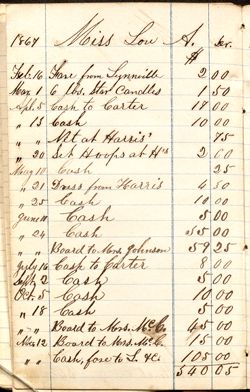 1867 Miss Lou A. Dr.
$
Feb. 16 Fare from Lynnville 2 00
Mar. 1 6 lbs. Star Candles 1 50
Apl. 5 Cash to Carter 17 00
" 13 Cash 10 00
" " at Harris' 75
" 20 Set Hoops at H's 2 00
May 10 Cash 25
" 21 Dress from Harris 4 50
" 25 Cash 10 00
June 10 Cash 5 00
" 24 Cash 55 00
" " Board to Mrs. Johnson 59 25
July 16 Cash to Carter 8 00
Sept. 2 Cash 5 00
Oct. 5 Cash 10 00
" 18 Cash 5 00
" " Board to Mrs. McC. 45 00
Nov. 12 Board to Mrs. McC. 15 00
" " Cash, to L. &c. 105 00
540 05